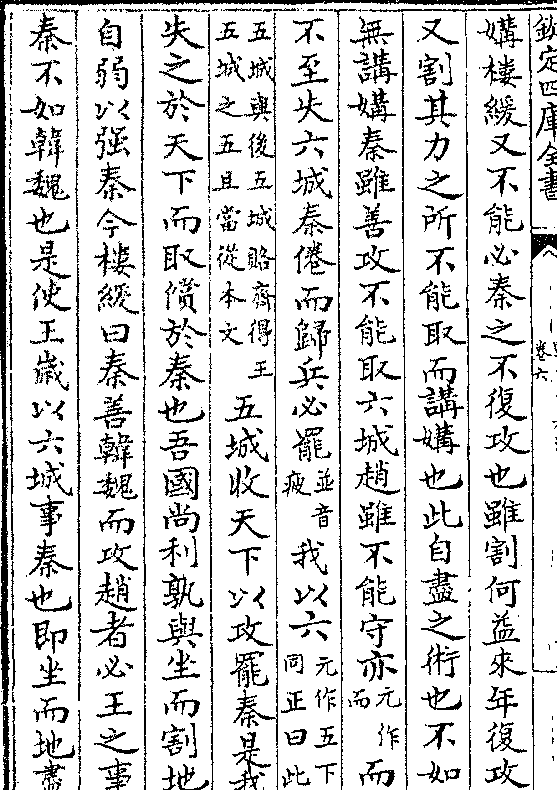 欽定四庫全書
卷六
媾樓緩又不能必秦之不復攻也雖割何益來年復攻
又割其力之所不能取而講媾也此自盡之術也不如
無講媾秦雖善攻不能取六城趙雖不能守亦元作而而
不至失六城秦倦而歸兵必罷並音疲我以六元作五下同正曰此
五城與後五城賂齊得王五城之五且當從本文五城收天下以攻罷秦是我
失之於天下而取償於秦也吾國尚利孰與坐而割地
自弱以强秦今樓緩曰秦善韓魏而攻趙者必王之事
秦不如韓魏也是使王嵗以六城事秦也即坐而地盡